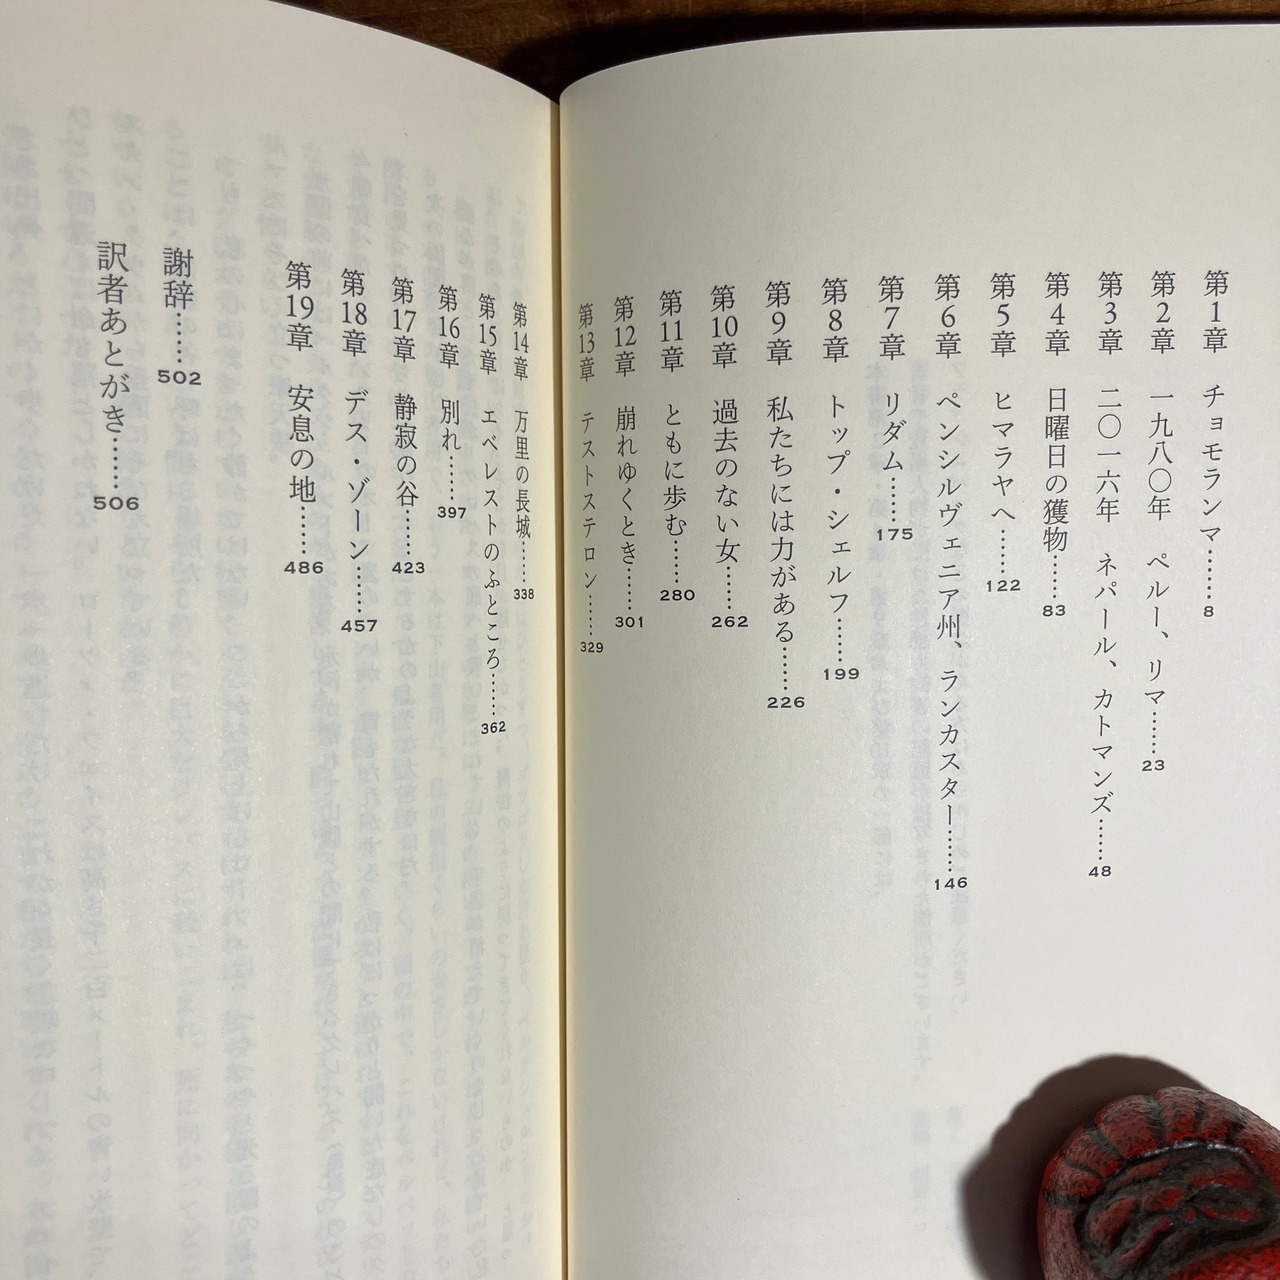 第1章 チョモランマ……8
第2章 一九八〇年 ペルー、リマ……23
第3章 二〇一六年 ネパール、カトマンズ……48
第4章 日曜日の獲物……83
第5章 ヒマラヤへ……122
第6章 ペンシルヴェニア州、ランカスター……146
第7章 リダム……175
第8章 トップ・シェルフ……199
第9章 私たちには力がある……226
第10章 過去のない女……262
第11章 ともに歩む……280
第12章 崩れゆくとき……301
第13章 テストステロン……329
第14章 万里の長城……338
第15章 エベレストのふところ……362
第16章 別れ……397
第17章 静寂の谷……423
第18章 デス・ゾーン……457
第19章 安息の地……486
謝辞……502
訳者あとがき……506